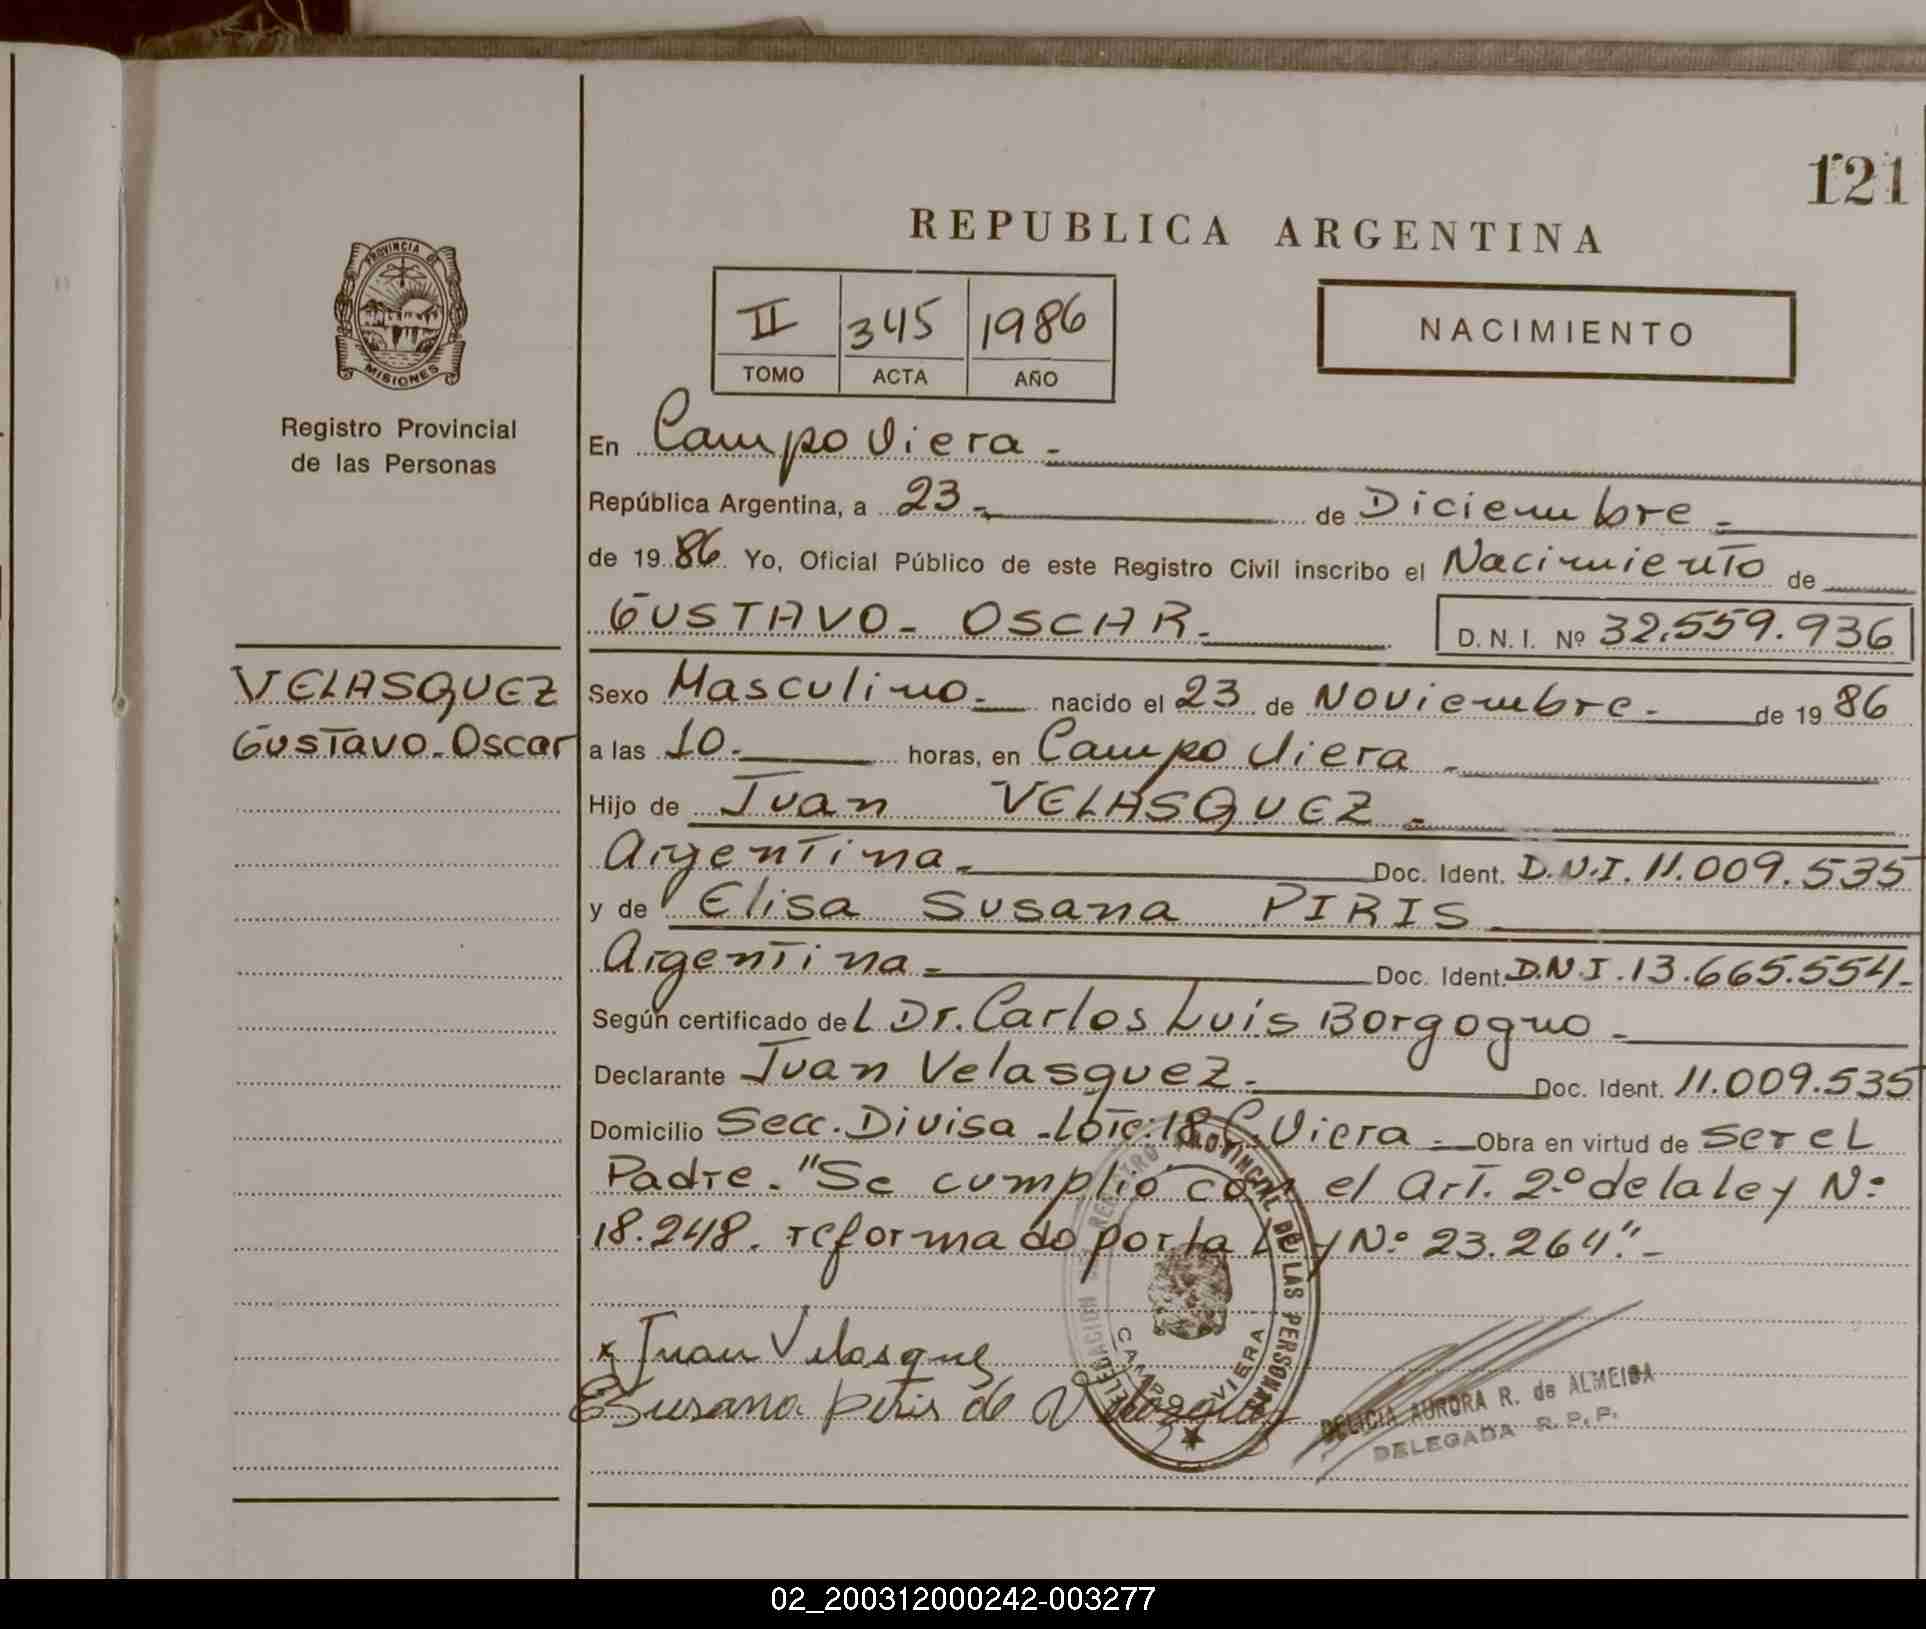 121
REPUBLICA ARGENTINA
PROVINCIA DE
MISIONES
II 345 1986
TOMO ACTA AÑO
NACIMIENTO
Registro Provincial
de las Personas
En Campo Viera -
República Argentina, a 23 - de Diciembre -
de 1986 Yo, Oficial Público de este Registro Civil inscribo el Nacimiento de
GUSTAVO - OSCAR - D. N. I. Nº 32.559.936
VELASQUEZ
Gustavo - Oscar
Sexo Masculino - nacido el 23 de Noviembre - de 1986
a las 10 - horas, en Campo Viera -
Hijo de Juan VELASQUEZ -
Argentina - Doc. Ident. D.N.I. 11.009.535
y de Elisa Susana PIRIS
Argentina - Doc. Ident. D.N.I. 13.665.554 -
Según certificado del Dr. Carlos Luis Borgogno -
Declarante Juan Velasquez - Doc. Ident. 11.009.535
Domicilio Secc. Divisa - Lote: 18 C. Viera - Obra en virtud de ser el
Padre - "Se cumplió con el Art. 2º de la ley Nº
18.248. reformado por la Ley Nº 23.264" -
x Juan Velasquez
E Susana Piris de Velazquez
DELEGACION DEL REGISTRO PROVINCIAL DE LAS PERSONAS
CAMPO VIERA
DELICIA AURORA R. de ALMEIDA
DELEGADA R. P. P.
02_200312000242-003277